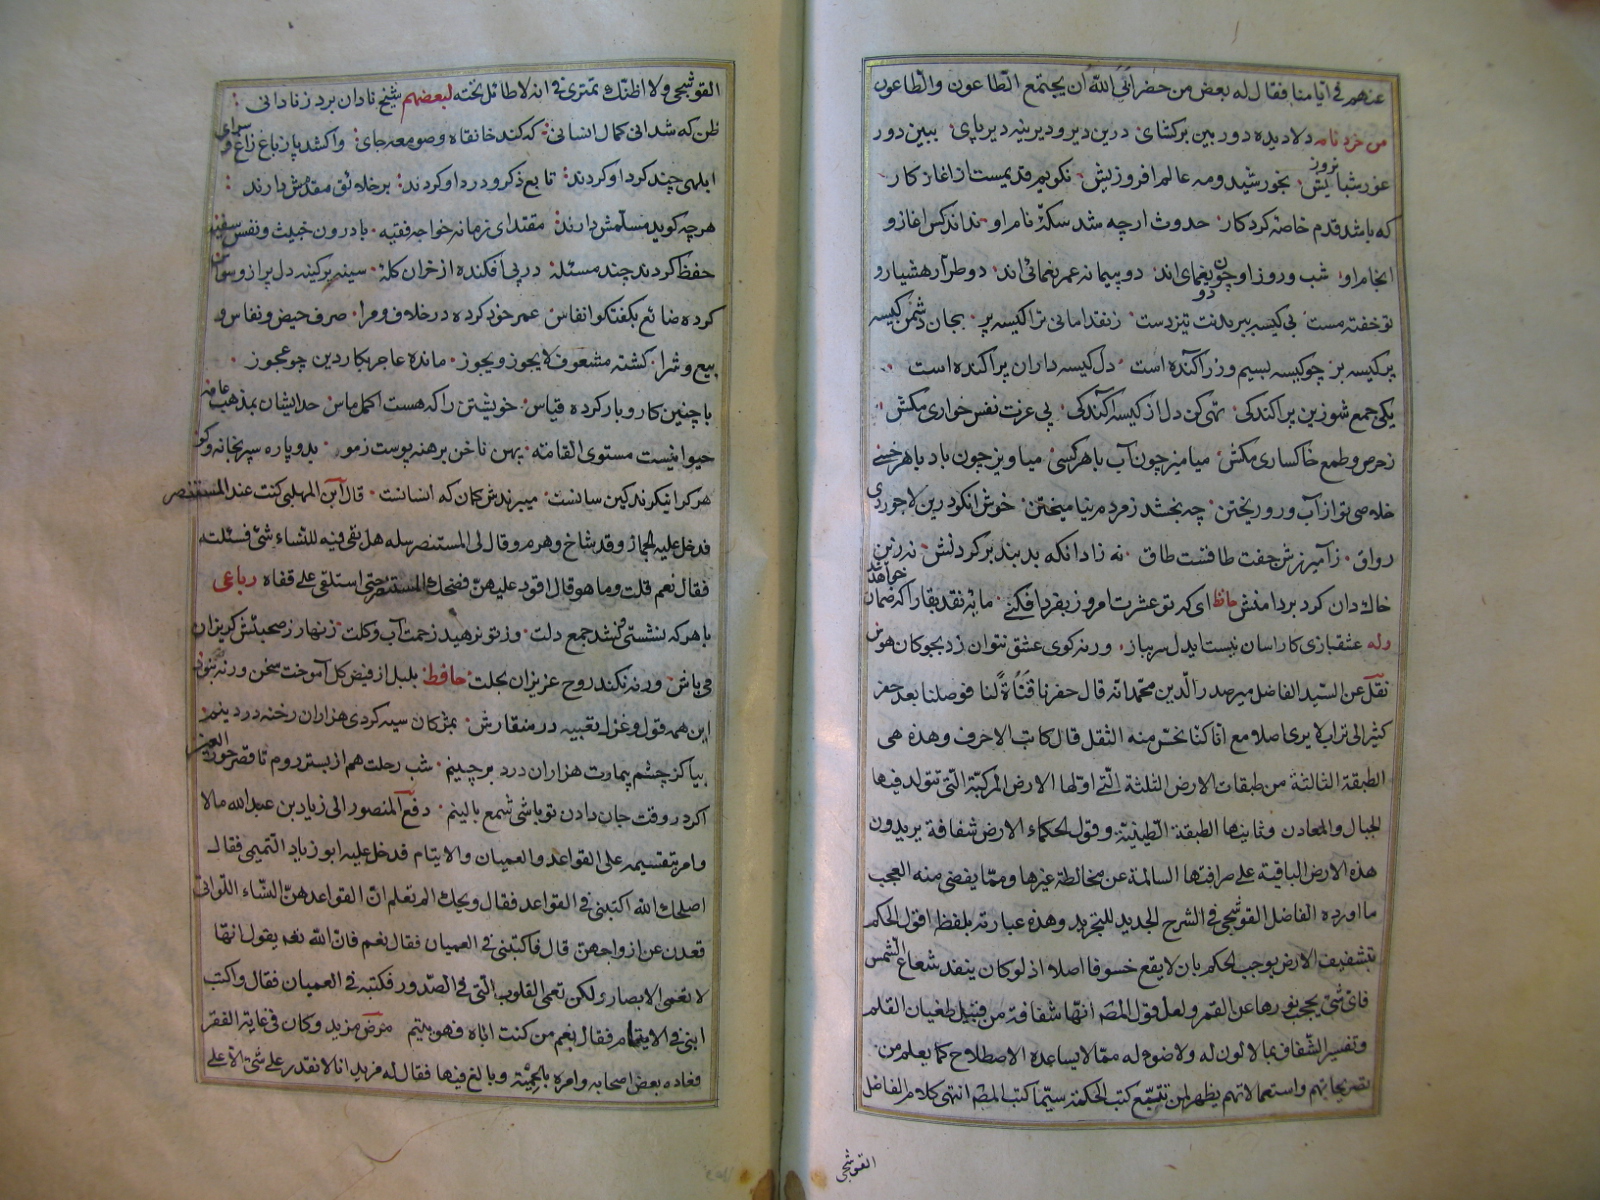 عنهم فی ایامنا فقال له بعض من حضر ابی الله أن یجتمع الطاعون والطاعون
من خردنامه دلا دیده دوربین برکشای درین دیر دیرینه دیرپای ببین دور
غور شبانروزیش بخورشید و مه عالم افروزیش نکویم قدیمست از اغاز کار
که باشد قدم خاصه کردکار حدوث ارچه شد سکهٔ نام او نداند کس اغاز و
انجام او شب و روز او چون دو یغمای اند دو پیمانه عمر یغمائی اند دو طرار هشیار و
تو خفته مست بی کیسه ببریدنت تیزدست زنقد امانی ترا کیسه پر بجان دشمن کیسه
پر کیسه بر چو کیسه بسیم و زر آکنده است دل کیسه داران پراکنده است
یکی جمع شو زین پراکندکی تهی کن دل از کیسه آکندکی پی عزت نفس خواری مکش
زحرص و طمع خاکساری مکش میامیز چون آب با هر کسی میاویز چون باد با هر خسی
خلاصی بتو از آب و رو ریختن چه بخشد زمردم نیامیختن خوش انکو درین لاجوردی
رواق زآمیزش جفت طاقست طاق نه زاد انکه بد بند بر کردنش نه زن
خاله دان کرد بر دامنش حافظ ای که تو عشرت امروز بفردا فکنی مایه نقد بقا را که ضمان خواهد شد
وله عشقبازی کار اسان نیست ایدل سر بباز ورنه کوی عشق نتوان زد بچوکان هوس
نقل عن السید الفاضل میر صدر الدین محمد انه قال حفرنا قناة لنا فوصلنا بعد حفر
کثیر الی تراب لا یری اصلا مع انا کنا نحس منه الثقل قال کاتب الاحرف وهذه هی
الطبقة الثالثة من طبقات الارض الثلثة التی اولها الارض المرکبة التی تتولد فیها
الجبال والمعادن وثانیها الطبقة الطینیة وقول الحکماء الارض شفافة یریدون
هذه الارض الباقیة علی صرافتها السالمة عن مخالطة غیرها ومما یقضی منه العجب
ما اورده الفاضل القوشجی فی الشرح الجدید للتجرید وهذه عبارته بلفظه اقول الحکم
بتشفیف الارض یوجب الحکم بان لا یقع خسوف اصلا اذ لو کان ینفذ شعاع الشمس
فای شئ یحجب نورها عن القمر ولعل قول المص انها شفافة من قبیل طغیان القلم
وتفسیر الشفاف بما لا لون له ولا ضوء له مما لا یساعده الاصطلاح کما یعلم من
تصریحاتهم واستعمالاتهم یظهر لمن تتبع کتب الحکمة سیما کتب المص انتهی کلام الفاضل
القوشجی
القوشجی ولا اظنک تمتری فی انه لا طائل تحته لبعضهم شیخ نادان برد ز نادانی
ظن که شد انی کمال انسانی که کند خانقاه وصومعه جای واکشد پا ز باغ و زاغ و سرای
ابلهی چند کرد او کردند تابع ذکر و ورد او کردند بر خلائق مقدمش دارند
هرچه کوید مسلمش دارند مقتدای زمانه خواجه فقیه با درون خبیث و نفس سفیه
حفظ کردند چند مسئله در پی افکنده از خران کله سینه پر کینه دل پر از وسواس
کرده ضائع بکفتکو انفاس عمر خود کرده در خلاف و مرا صرف حیض و نفاس و
بیع و شرا کشته مشعوف لایجوز و یجوز مانده عاجز بکار دین چو عجوز
با چنین کار و بار کرده قیاس خویشتن را که هست اکمل ناس حد ایشان بمذهب عامه
حیوانیست مستوی القامه پهن ناخن برهنه پوست زمو بدو پا ره سپر بخانه و کو
هر کرا نیکرند کین سانست میبرندش کمان که انسانست قال ابن المهلبی کنت عند المستنصر
فدخل علیه الجماز وقد شاخ وهرم وقال لی المستنصر سله هل بقی فیه للنساء شئ فسئلته
فقال نعم قلت وما هو قال اقود علیهن فضحک المستنصر حتی استلقی علی قفاه رباعی
با هر که بنشستی و نشد جمع دلت وز تو نرهید زحمت آب و کلت زنهار ز صحبتش کریزان
می باش ورنه نکند روح عزیزان بحلت حافظ بلبل از فیض کل آموخت سخن ورنه نبود
این همه قول و غزل تعبیه در منقارش بمژکان سیه کردی هزاران رخنه در دینم
بیا کز چشم بیمارت هزاران درد برچینم شب رحلت هم از بستر روم تا قصر حور العین
اکر در وقت جان دادن تو باشی شمع بالینم دفع المنصور الی زیاد بن عبد الله مالا
وامر بتقسیمه علی القواعد والعمیان والایتام فدخل علیه ابو زیاد التمیمی فقال
اصلحک الله اکتبنی فی القواعد فقال ویحک الم تعلم ان القواعد هن النساء اللواتی
قعدن عن ازواجهن قال فاکتبنی فی العمیان فقال نعم فان الله نعم یقول انها
لا تعمی الابصار ولکن تعمی القلوب التی فی الصدور فکتبه فی العمیان فقال واکتب
ابنی فی الایتام فقال نعم من کنت اباه فهو یتیم مرض مزید وکان فی غایة الفقر
فعاده بعض اصحابه وامره بالحمیة وبالغ فیها فقال له مزید انا لا نقدر علی شئ الا علی